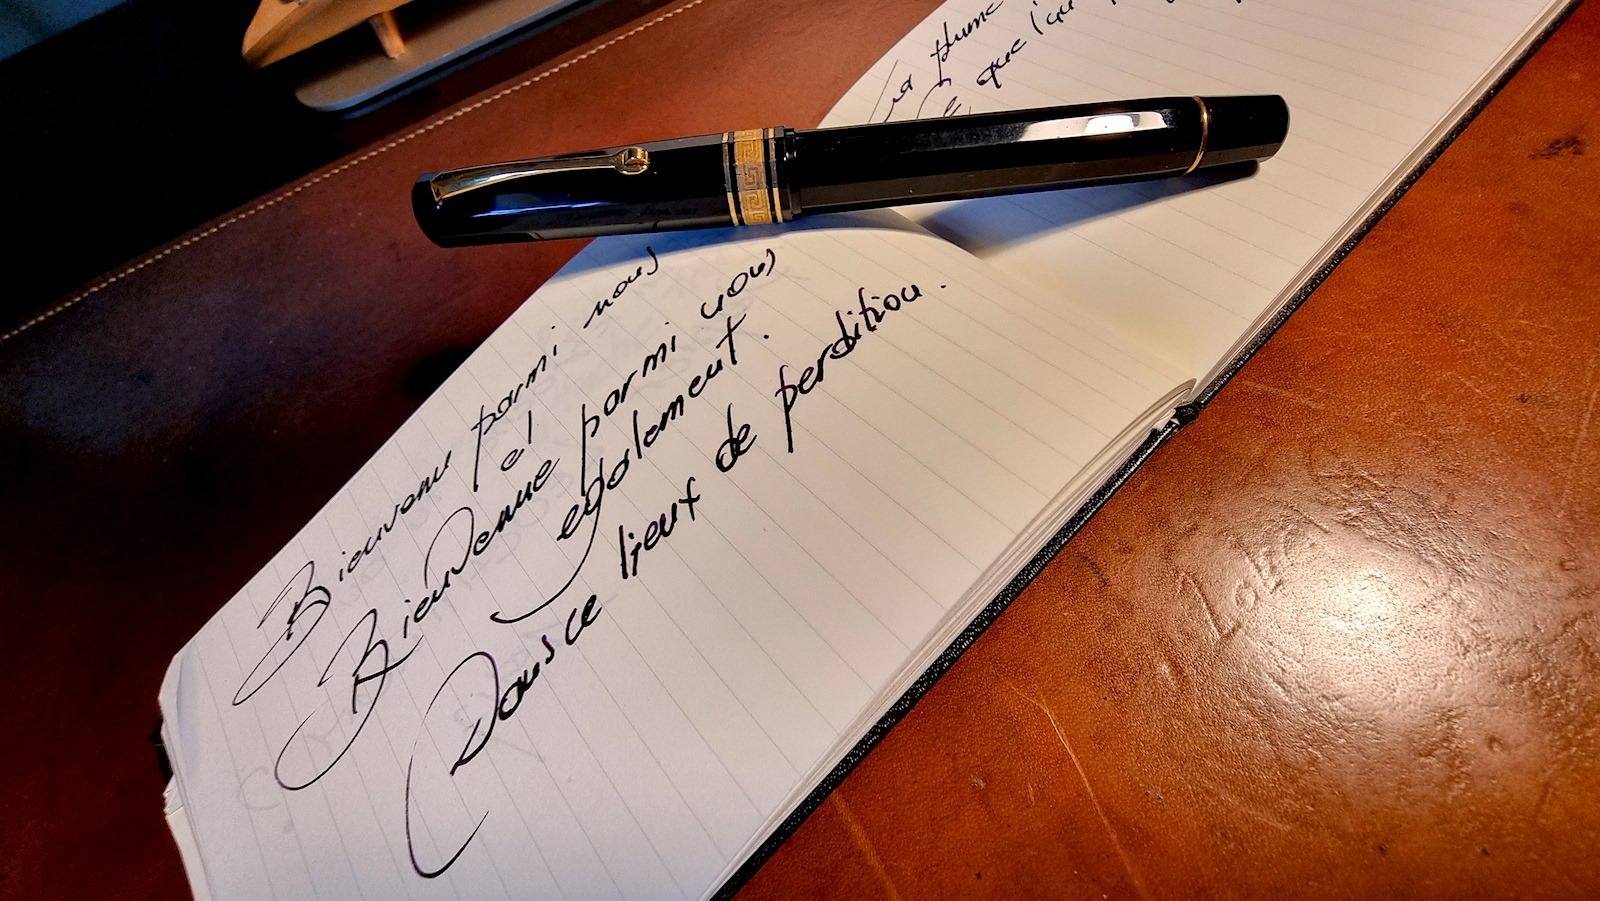 Bienvenu parmi nous
et
Bienvenue parmi nous
également.
Dans ce lieux de perdition.
plume
que